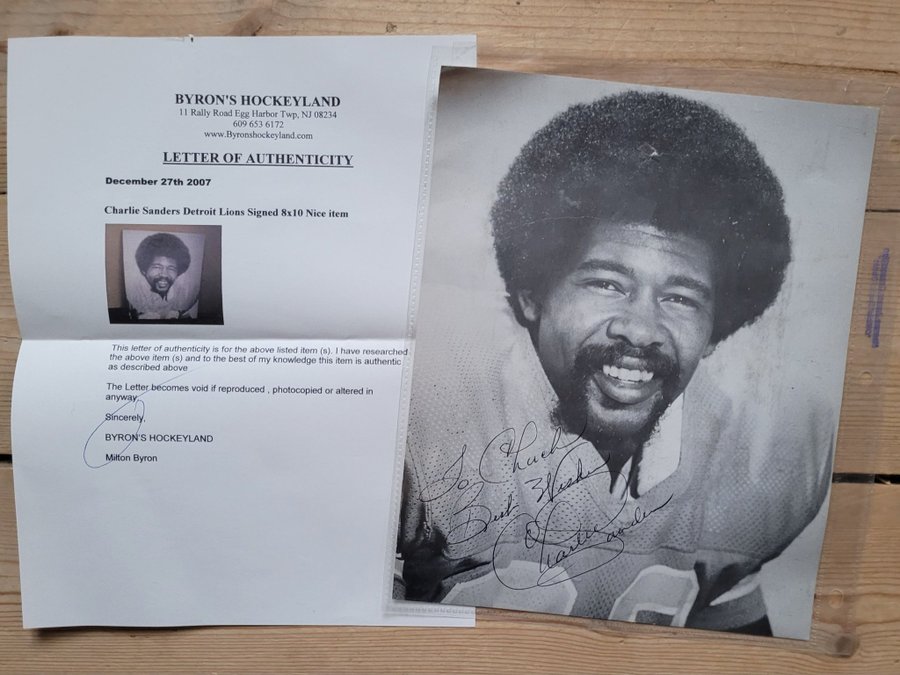 BYRON'S HOCKEYLAND
11 Rally Road Egg Harbor Twp, NJ 08234
609 653 6172
www.Byronshockeyland.com
LETTER OF AUTHENTICITY
December 27th 2007
Charlie Sanders Detroit Lions Signed 8x10 Nice item
This letter of authenticity is for the above listed item (s). I have researched
the above item (s) and to the best of my knowledge this item is authentic
as described above
The Letter becomes void if reproduced , photocopied or altered in
anyway.
Sincerely,
BYRON'S HOCKEYLAND
Milton Byron
To Chuck
Best Wishes
Charlie Sanders